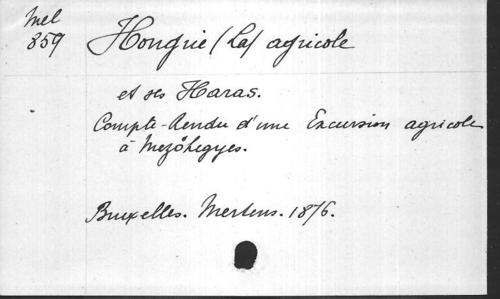 Mel
859
Hongrie (La) agricole
et ses Haras.
Compte-Rendu d'une Excursion agricole
à Mezöhegyes.
Bruxelles. Mertens. 1876.